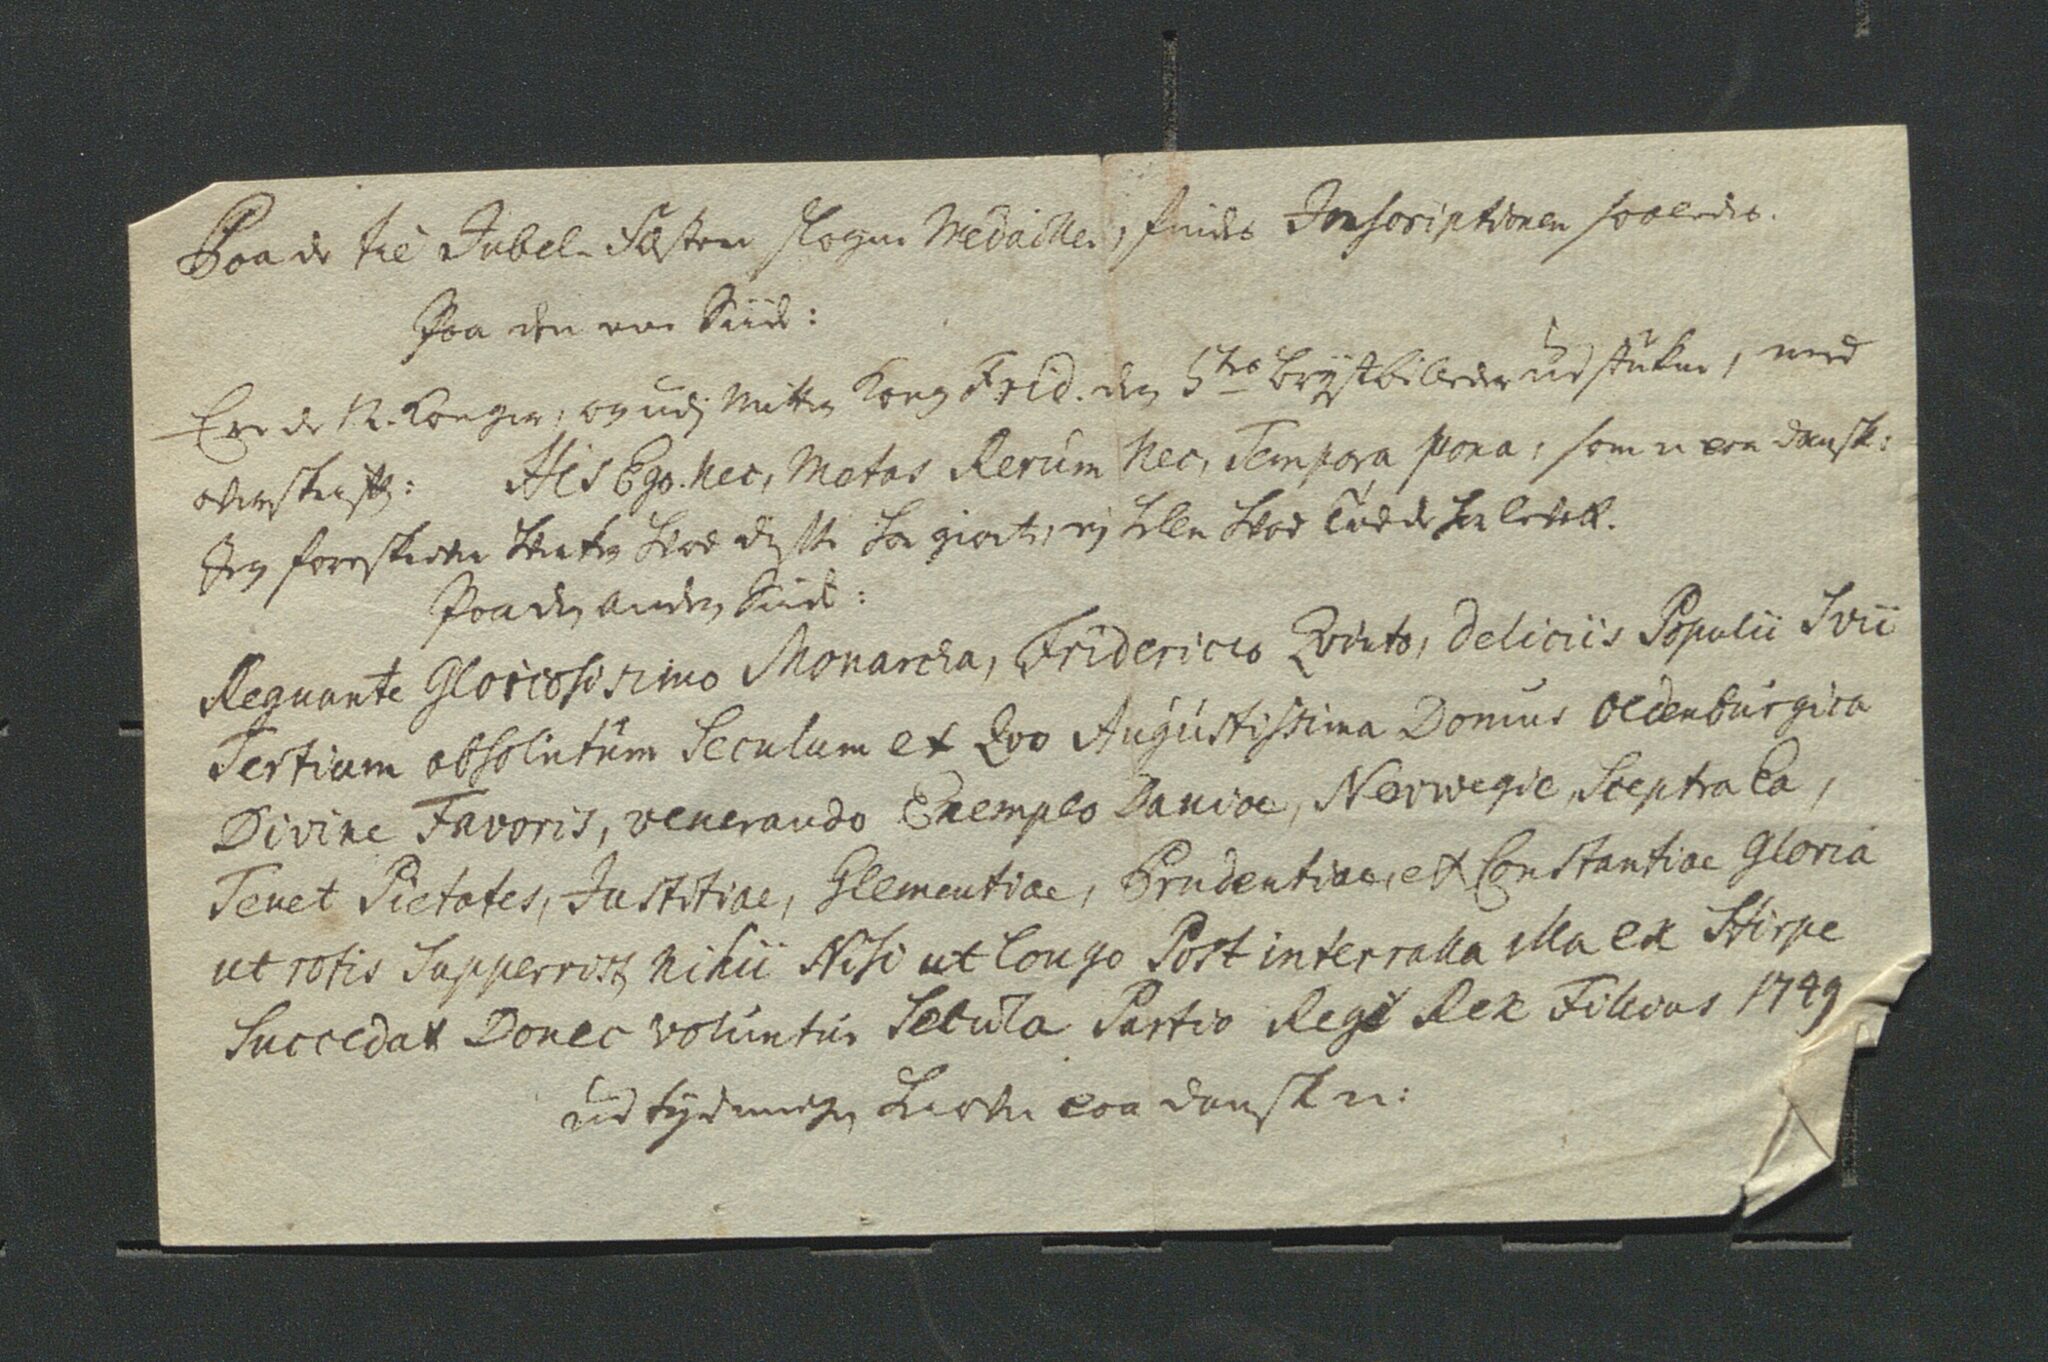 Paa de til Jubel-Festen slagne Medailler, findes Inscriptionen saaledes.
Paa den ene Siide:
Ere de 12. Konger, og udj Mitten Kong Frid. den 5tes Brystbilleder udstuken, med
overskrift: His Ego. nec, Metas Rerum Nec, Tempora pona, som er paa dansk:
Jeg foreskriver hverken hvad disse har giort, ej heller hvad Tiid de har levet.
Paa den anden Siide:
Regnante Gloriosisimo Monarcha, Fridericio Qvinto, deliciis Populii Svii
Tertium absolutum Seculum ex Qvo Augustissima Domus Oldenburgica
Divine Favoris, venerando Exemplo Daniae, Norwegie, Sceptra Ea,
Tenet Pietates, Justitiae, Glementiae, Prudentiae, et Constantiae Gloria
ut votis Supperrist nihii Nisi ut longo Post intervalla illa ex Stirpe
Succedat Donec voluntur Secula Partio Regi Rex Filius 1749
udtydningen herover paa dansk er: